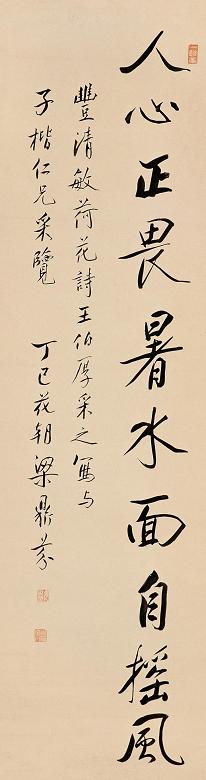 人心正畏暑水面自摇風
豐清敏荷花詩王伯厚采之寫与
子楷仁兄采覽 丁巳花朝梁鼎芬